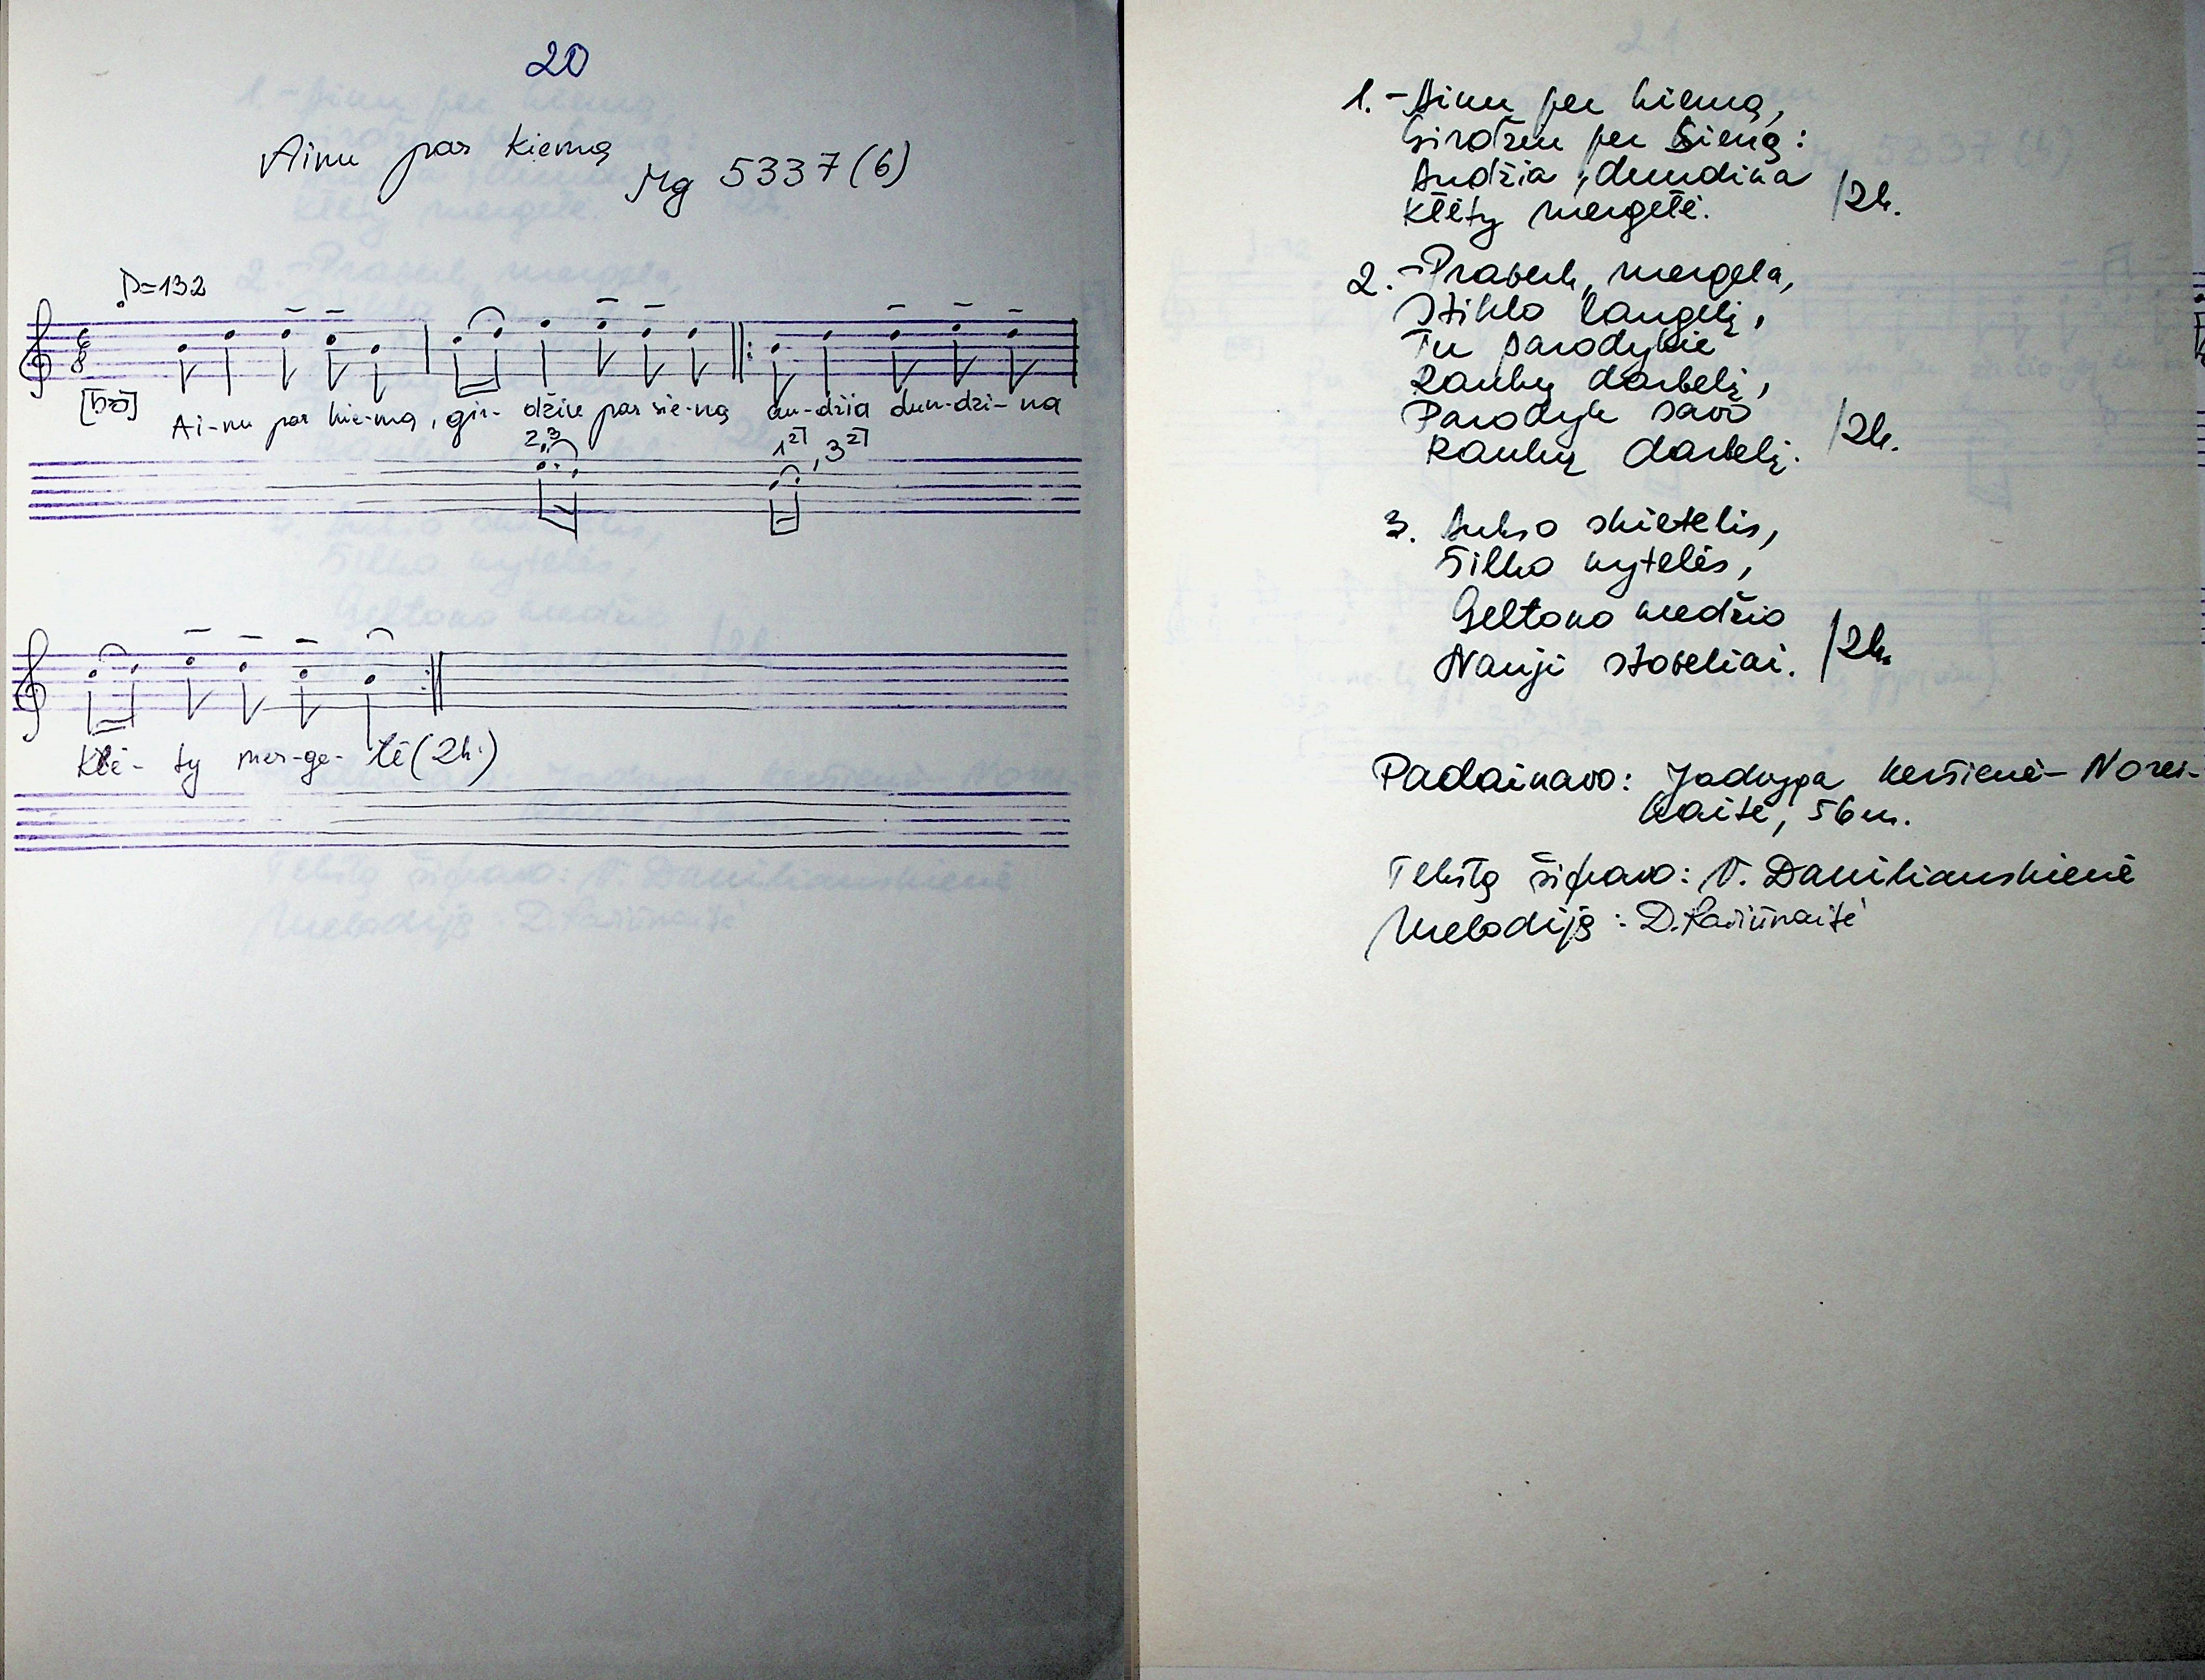 20
Ainu par kiemą
Mg 5337 (6)
♪=132
Ai-nu par kie-mą, gir- džiu par sie-ną au-džia dun-dzi-na
2,3
1 2], 3 2]
Klė- ty mer-ge- lė (2k.)
1. - Ainu per kiemą,
Girdžiu per sieną:
Audžia, dundina
Klėty mergelė. /2k.
2. - Praverk, mergela,
Stiklo langelį,
Tu parodykie
Rankų darbelį,
Parodyk savo
Rankų darbelį. /2k.
3. Aukso skietelis,
Šilko nytelės,
Geltono medžio
Nauji stoveliai. /2k.
Padainavo: Jadvyga Keršienė- Norei-
kaitė, 56 m.
Tekstą šifravo: V. Daniliauskienė
Melodiją: D.